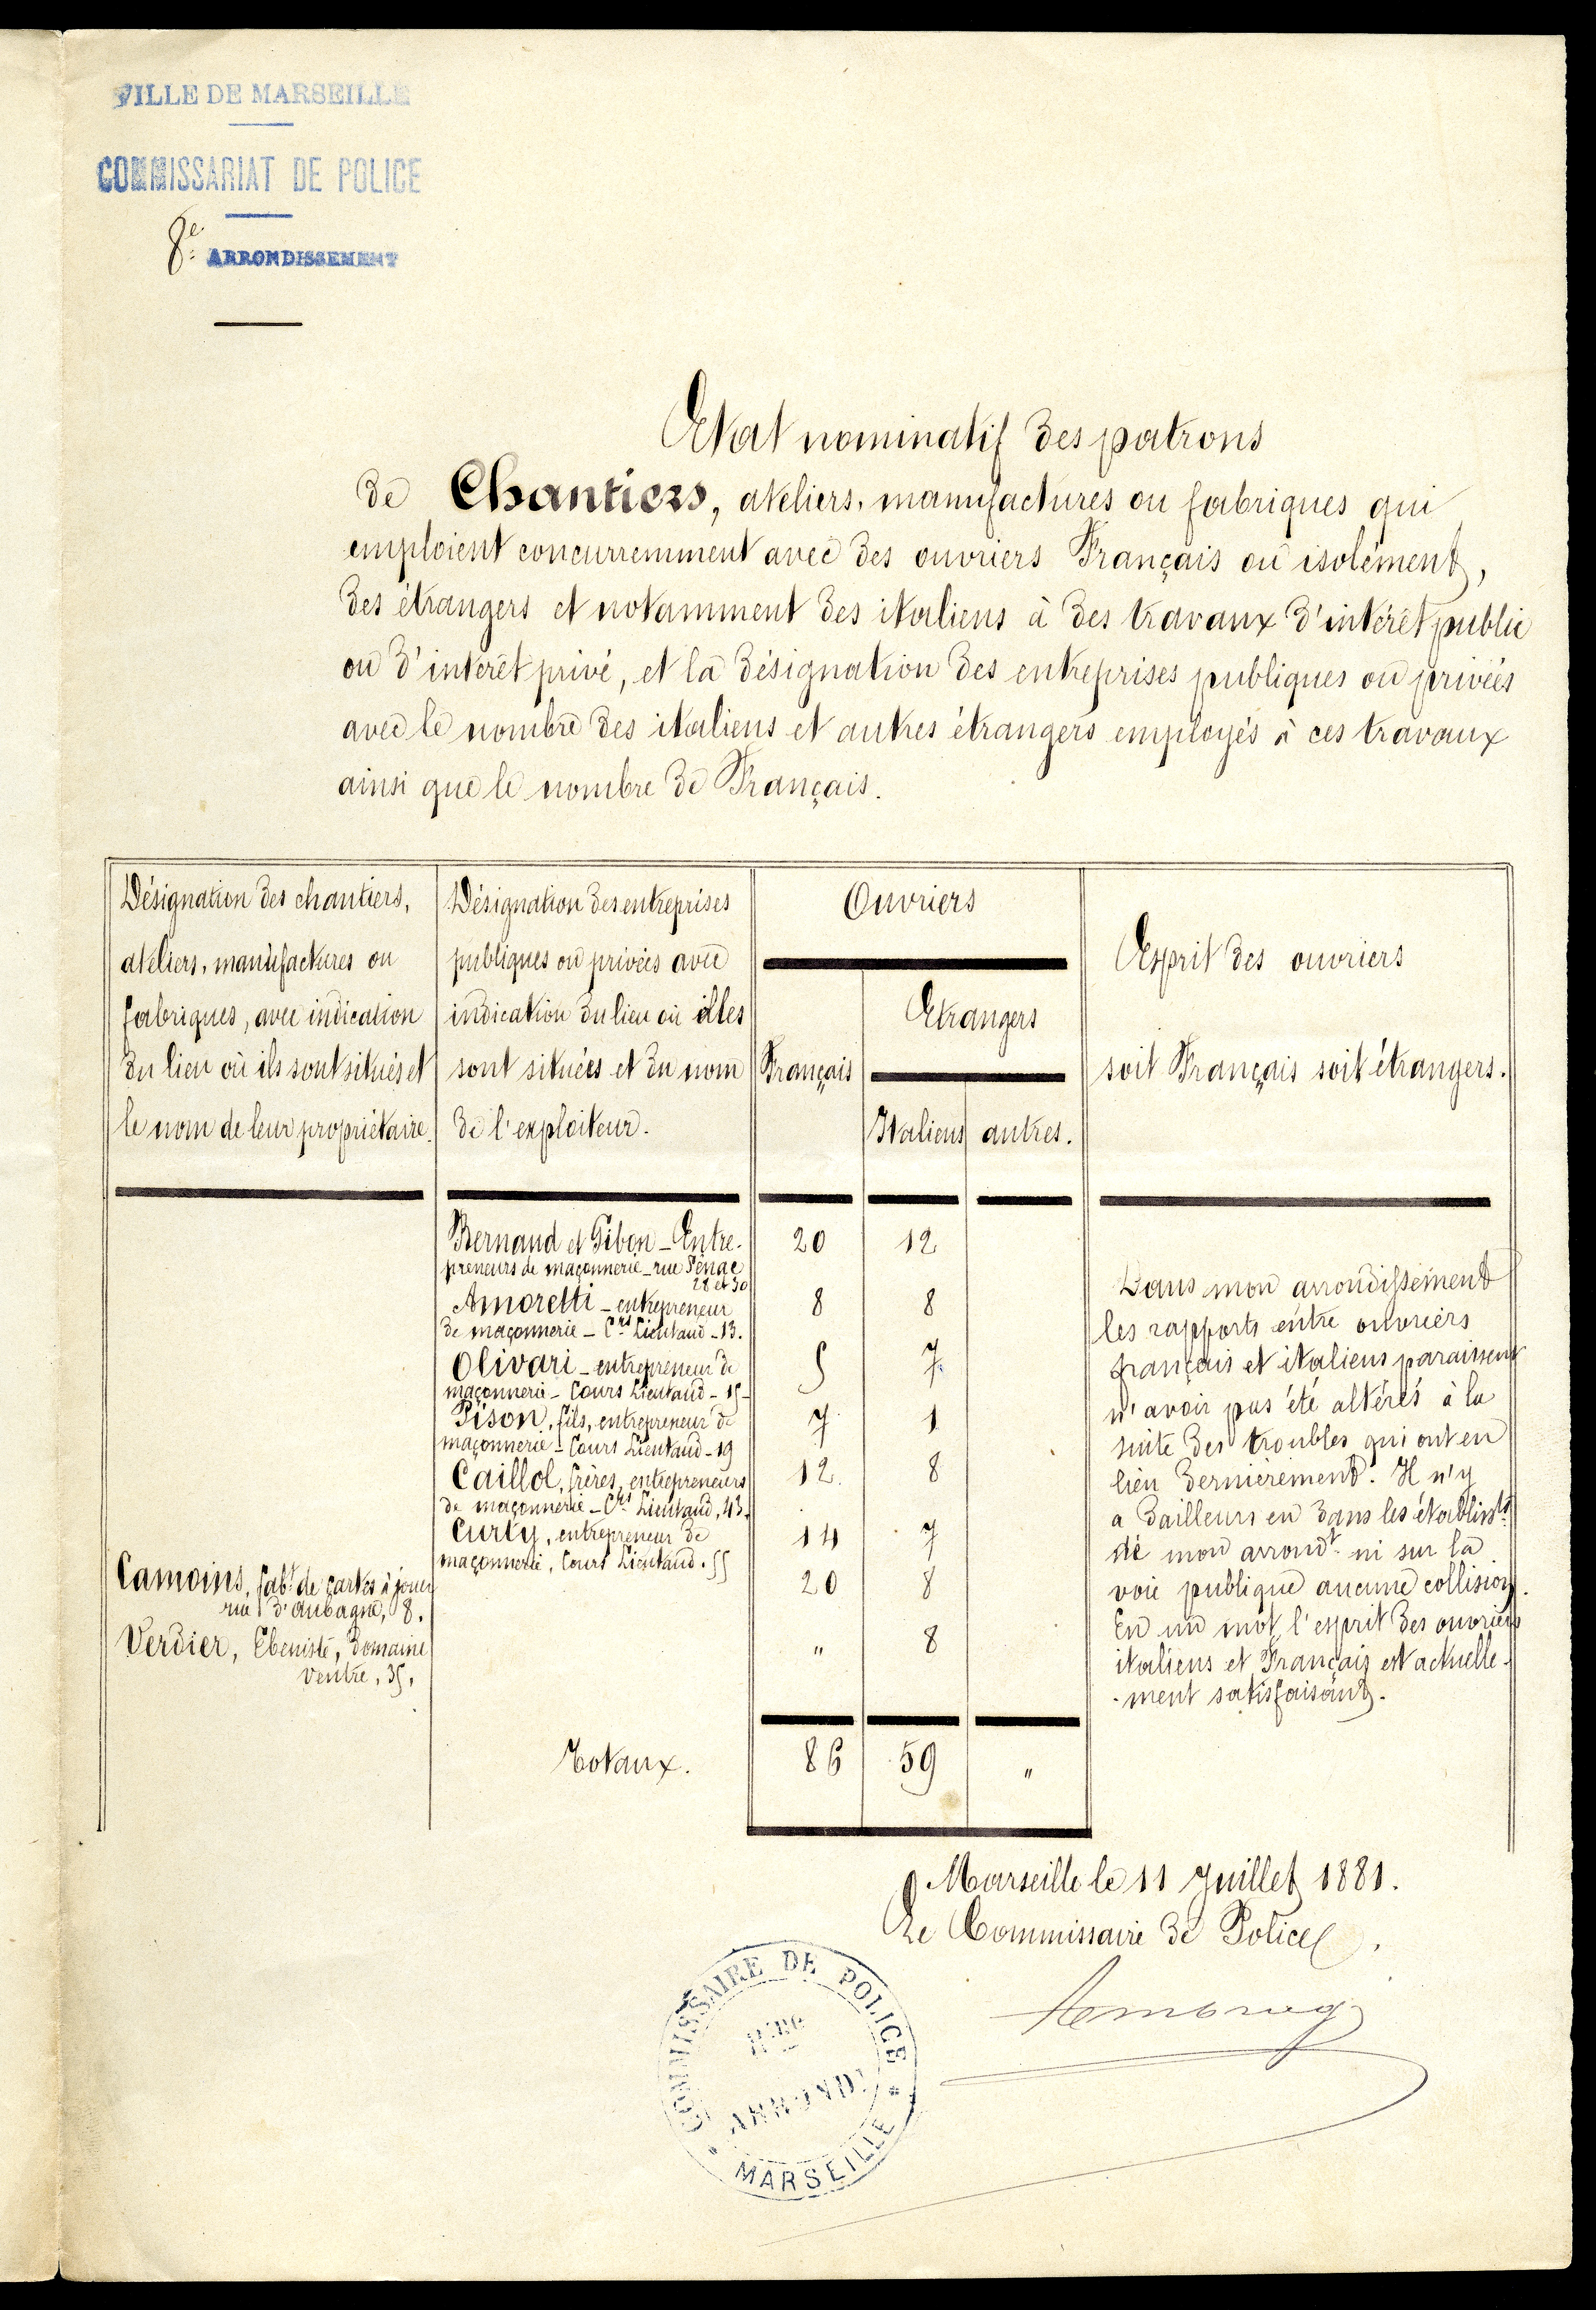 VILLE DE MARSEILLE
COMMISSARIAT DE POLICE
8e ARRONDISSEMENT
Etat nominatif des patrons
de Chantiers, ateliers, manufactures ou fabriques qui
emploient concurremment avec des ouvriers Français ou isolément,
des étrangers et notamment des italiens à des travaux d'intérêt public
ou d'intérêt privé, et la désignation des entreprises publiques ou privées
avec le nombre des italiens et autres étrangers employés à ces travaux
ainsi que le nombre de Français.
Désignation des chantiers,
ateliers, manufactures ou
fabriques, avec indication
du lieu où ils sont situés et
le nom de leur propriétaire.
Désignation des entreprises
publiques ou privées avec
indication du lieu où elles
sont situées et du nom
de l'exploiteur.
Ouvriers
Français
Etrangers
Italiens autres.
Esprit des ouvriers
soit Français soit étrangers.
Bernaud et Gibon - Entre- 20 12
preneurs de maçonnerie - rue Sénac
28 et 30
Amoretti - entrepreneur 8 8
de maçonnerie - Crs Lieutaud - 13.
Olivari - entrepreneur de 5 7
maçonnerie - Cours Lieutaud - 15 -
Pison, fils, entrepreneur de 7 1
maçonnerie - Cours Lieutaud - 19
Caillol, frères, entrepreneurs 12. 8
de maçonnerie - Crs Lieutaud, 43.
Curty, entrepreneur de 14 7
maçonnerie, Cours Lieutaud. 55
Camoins, fabt de cartes à jouer 20 8
rue d'Aubagne, 8.
Verdier, Ebeniste, domaine " 8
Ventre, 35,
Totaux. 86 59 "
Dans mon arrondissement
les rapports entre ouvriers
français et italiens paraissent
n'avoir pas été altérés à la
suite des troubles qui ont eu
lieu dernièrement. Il n'y
a dailleurs eu dans les établissts
de mon arrondt ni sur la
voie publique aucune collision.
En un mot l'esprit des ouvriers
italiens et Français est actuelle-
-ment satisfaisant.
Marseille le 11 Juillet 1881.
Le Commissaire de Police,
COMMISSAIRE DE POLICE
ARRONDT
MARSEILLE